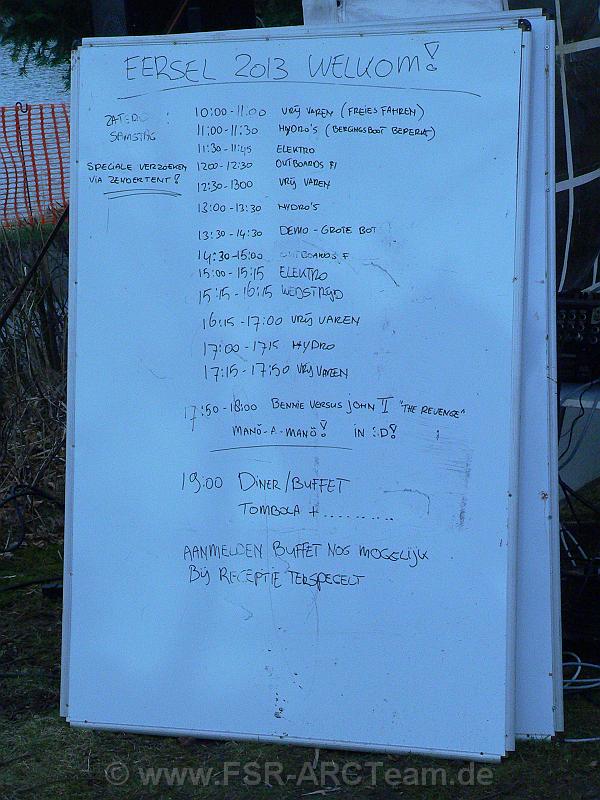 EERSEL 2013 WELKOM!
10:00-11:00 VRIJ VAREN (FREIES FAHREN)
SAMSTAG
11:00-11:30 HYDRO'S (BERGINGSBOOT BEPERKT)
11:30-11:45 ELEKTRO
SPECIALE VERZOEKEN
VIA ZENDERTENT!
1200-12:30 OUTBOARDS F1
12:30-1300 VRIJ VAREN
13:00-13:30 HYDRO'S
13:30-14:30 DEMO-GROTE BOT
14:30-15:00 OUTBOARDS F
15:00-15:15 ELEKTRO
15:15-16:15 WEDSTRIJD
16:15-17:00 VRIJ VAREN
17:00-1715 HYDRO
17:15-17:50 VRIJ VAREN
17:50-18:00 BENNIE VERSUS JOHN II "THE REVENGE"
MANO-A-MANO! IN 3D!
19:00 DINER/BUFFET
TOMBOLA + ..........
AANMELDEN BUFFET NOG MOGELIJK
BIJ RECEPTIE TERSPEGELT
© www.FSR-ARCTeam.de